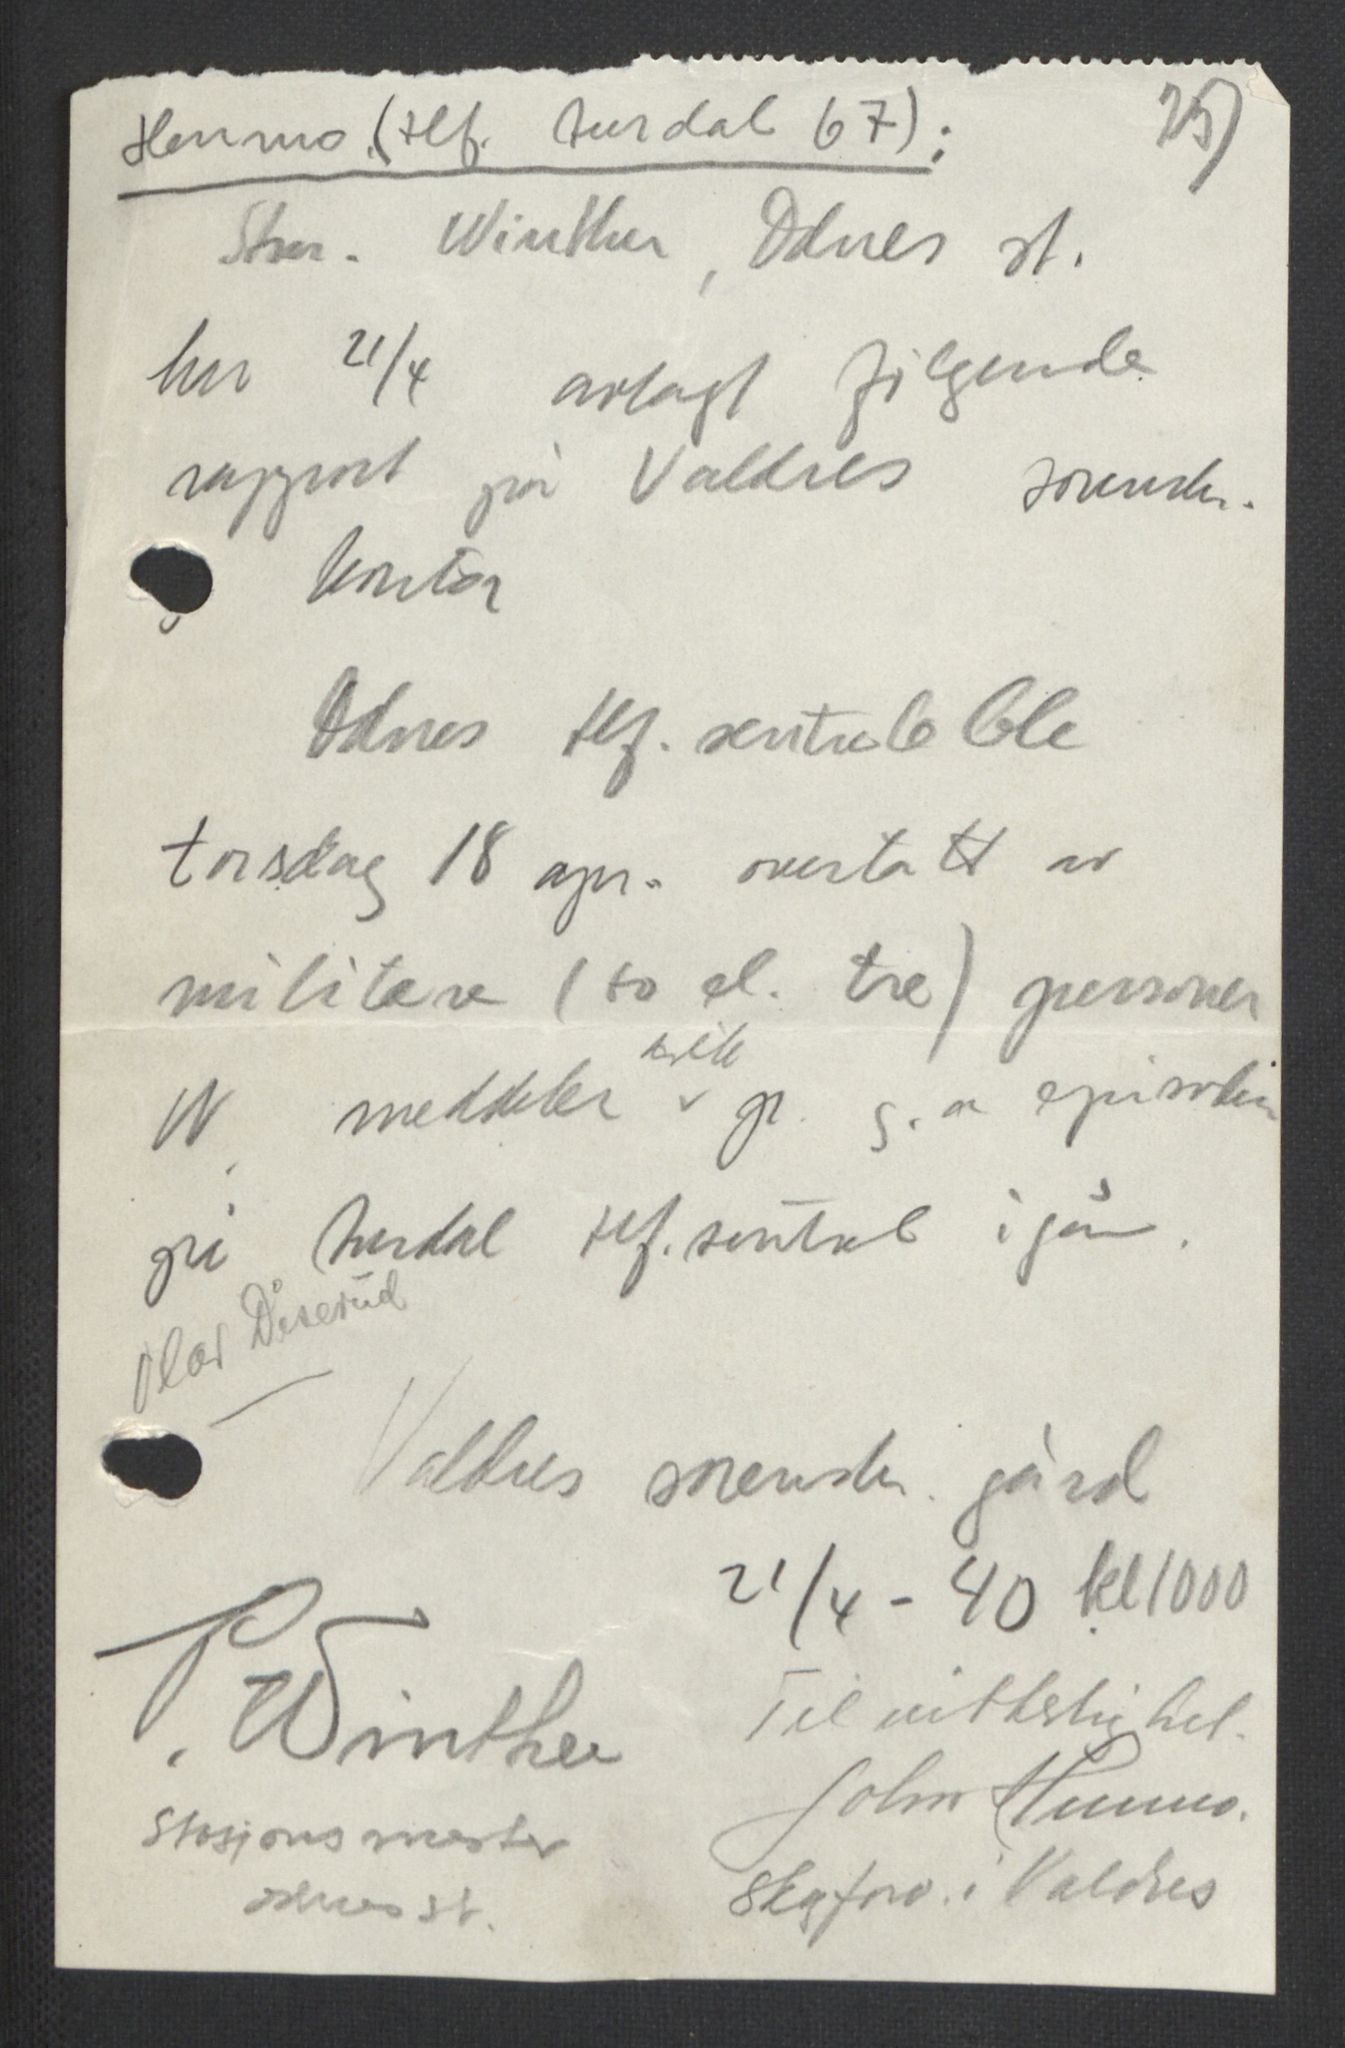 Hermo (tlf. Aurdal 67):
25)
Stm. Winther, Odnes st.
har 21/4 avlagt følgende
rapport på Valdres sorenskr.
kontor
Odnes tlf. sentral ble
torsdag 18 apr. overtatt av
militære (to el. tre) personer
W. meddeler dette p. g. a episoden
på Aurdal tlf. sentral igår.
Olav Diserud
Valdres sorenskr. gård
21/4 - 40 kl 1000
P. Winther
Til vitterlighet.
John Hermo.
Stasjonsmester
Odnes st.
Skogforv. i Valdres